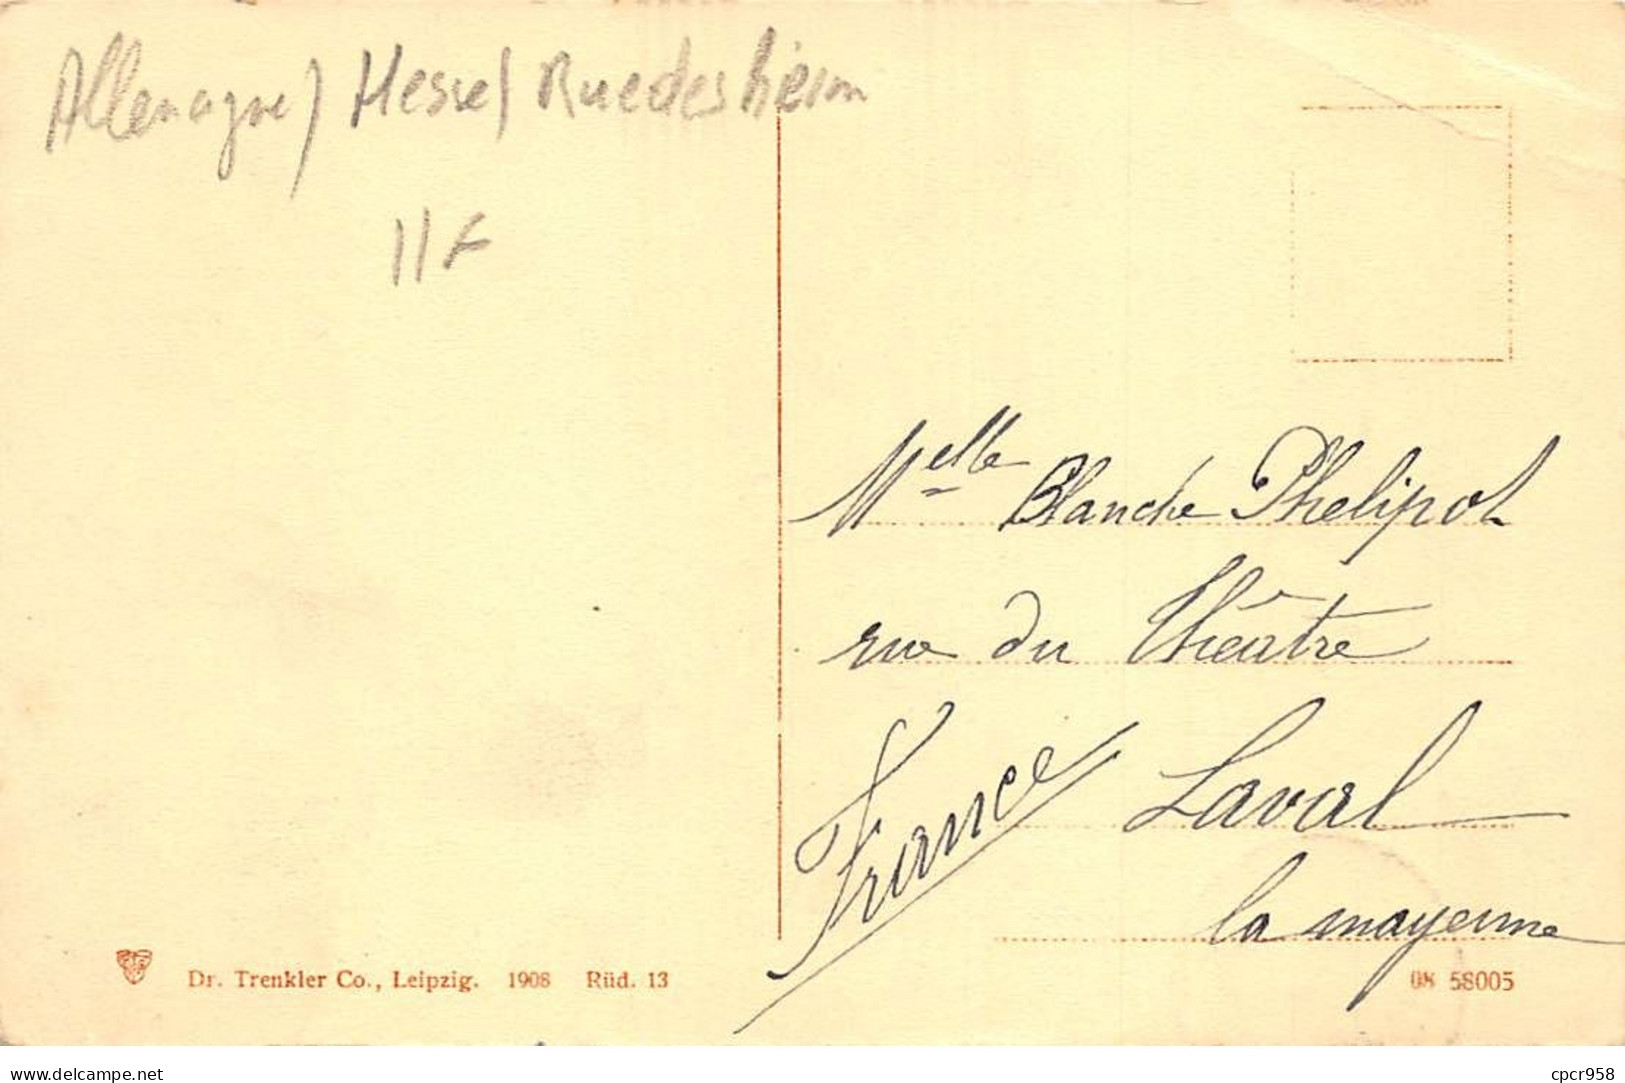 Allemagne / Hesse / Ruedesheim
11F
Melle Blanche Phelipot
rue du Théâtre
France
Laval
la mayenne
Dr. Trenkler Co., Leipzig. 1908 Rüd. 13
08 58005
www.delcampe.net
cpcr958